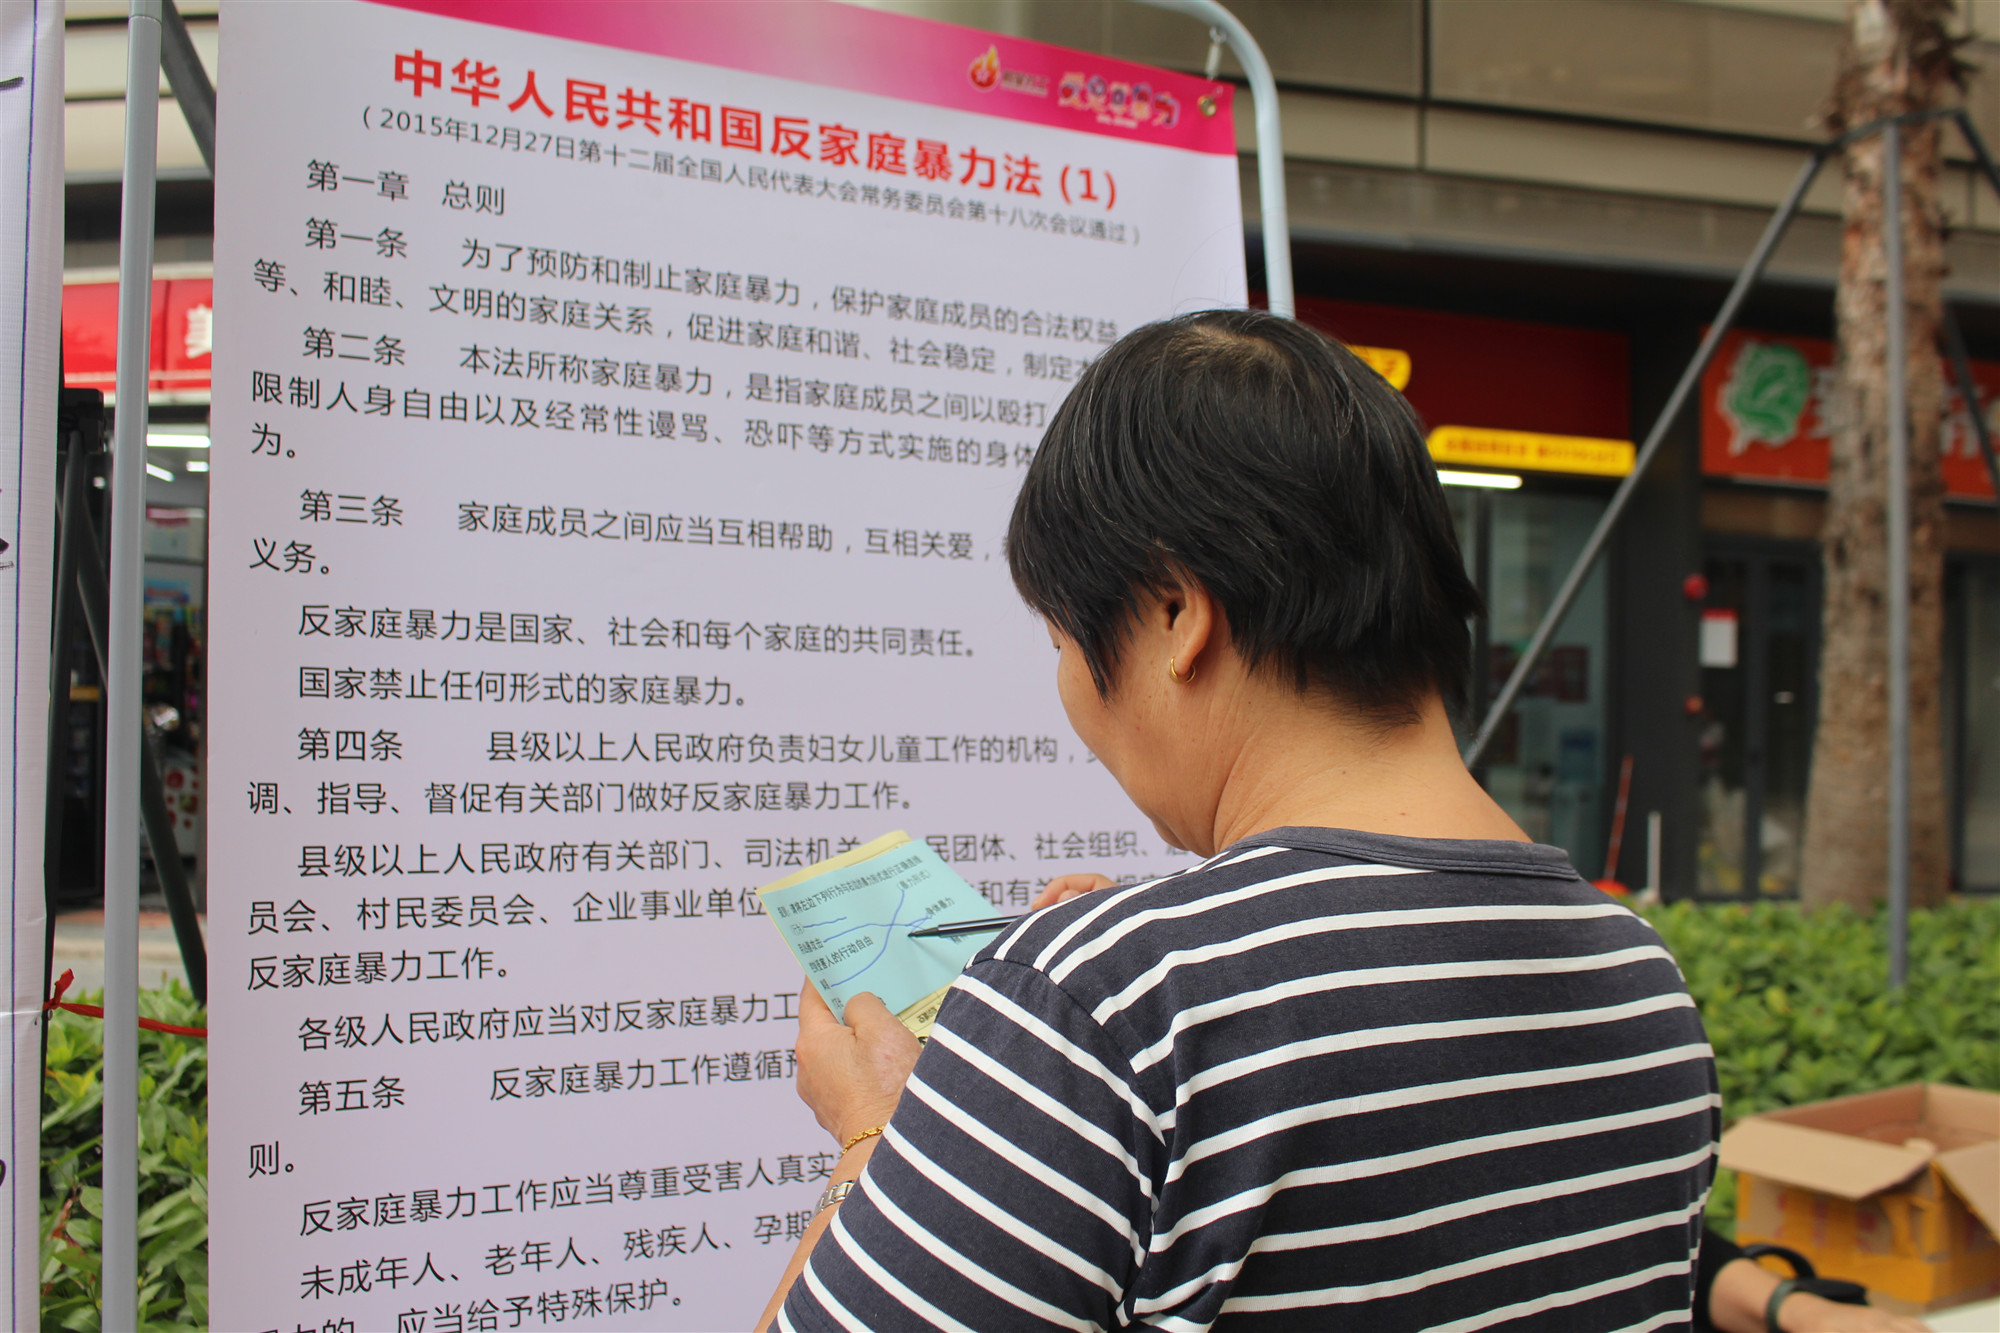 中华人民共和国反家庭暴力法 (1)
(2015年12月27日第十二届全国人民代表大会常务委员会第十八次会议通过)
第一章 总则
第一条 为了预防和制止家庭暴力，保护家庭成员的合法权益
等、和睦、文明的家庭关系，促进家庭和谐、社会稳定，制定本
第二条 本法所称家庭暴力，是指家庭成员之间以殴打
限制人身自由以及经常性谩骂、恐吓等方式实施的身体
为。
第三条 家庭成员之间应当互相帮助，互相关爱，
义务。
反家庭暴力是国家、社会和每个家庭的共同责任。
国家禁止任何形式的家庭暴力。
第四条 县级以上人民政府负责妇女儿童工作的机构，
调、指导、督促有关部门做好反家庭暴力工作。
县级以上人民政府有关部门、司法机关 民团体、社会组织、
员会、村民委员会、企业事业单位 和有关
反家庭暴力工作。
各级人民政府应当对反家庭暴力工
第五条 反家庭暴力工作遵循预
则。
反家庭暴力工作应当尊重受害人真实
未成年人、老年人、残疾人、孕期
力的，应当给予特殊保护。
请将左边下列行为与右边的暴力形式进行正确连线
(暴力形式)
身体暴力
害人的行动自由